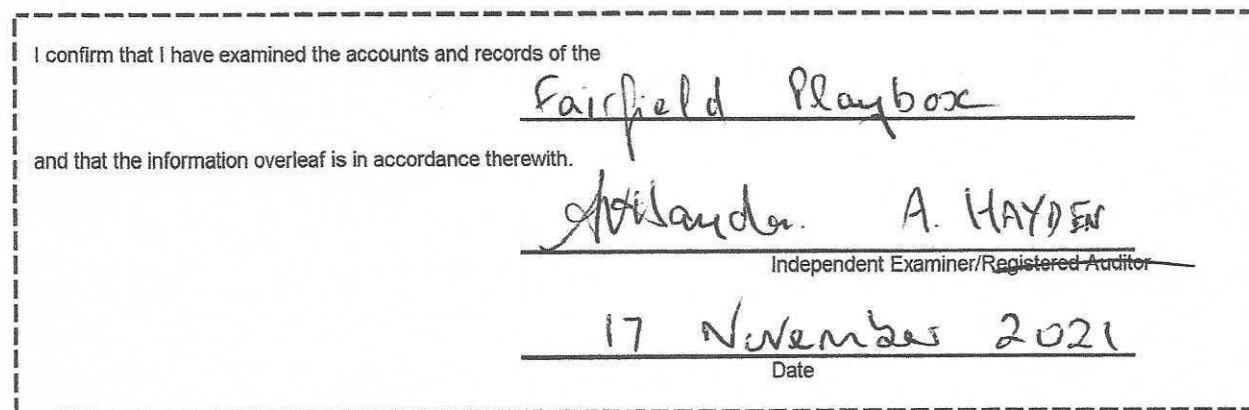 I confirm that I have examined the accounts and records of the
Fairfield Playbox
and that the information overleaf is in accordance therewith.
A. HAYDEN
Independent Examiner/Registered Auditor
17 November 2021
Date